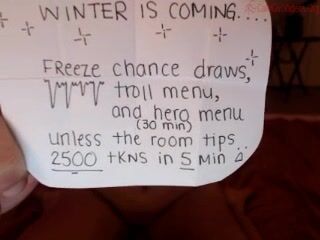 WINTER IS COMING....
FREEZE chance draws,
troll menu,
and hero menu
(30 min)
unless the room tips..
2500 TKNS in 5 Min